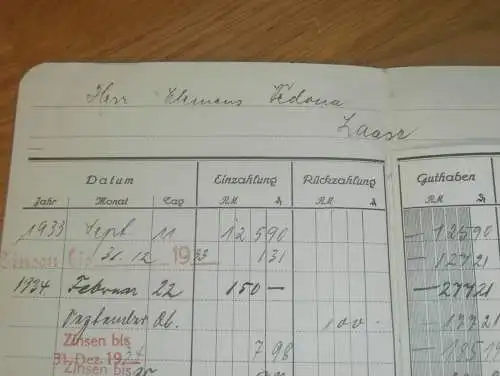 Herr Clemens Vedova
Laase
Datum Einzahlung Rückzahlung Guthaben
Jahr Monat Tag RM RM RM
1933 Sept 11 125 90 — 125 90
Zinsen bis 31. 12 1933 1 31 — 127 21
1934 Februar 22 150 — — 277 21
September 26. 100 — 177 21
Zinsen bis
31. Dez. 1934 7 98 — 185 19
Zinsen bis